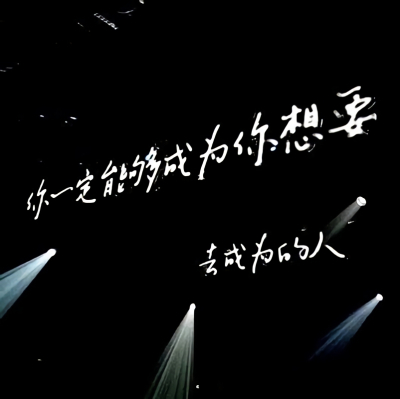 你一定能够成为你想要
去成为的人